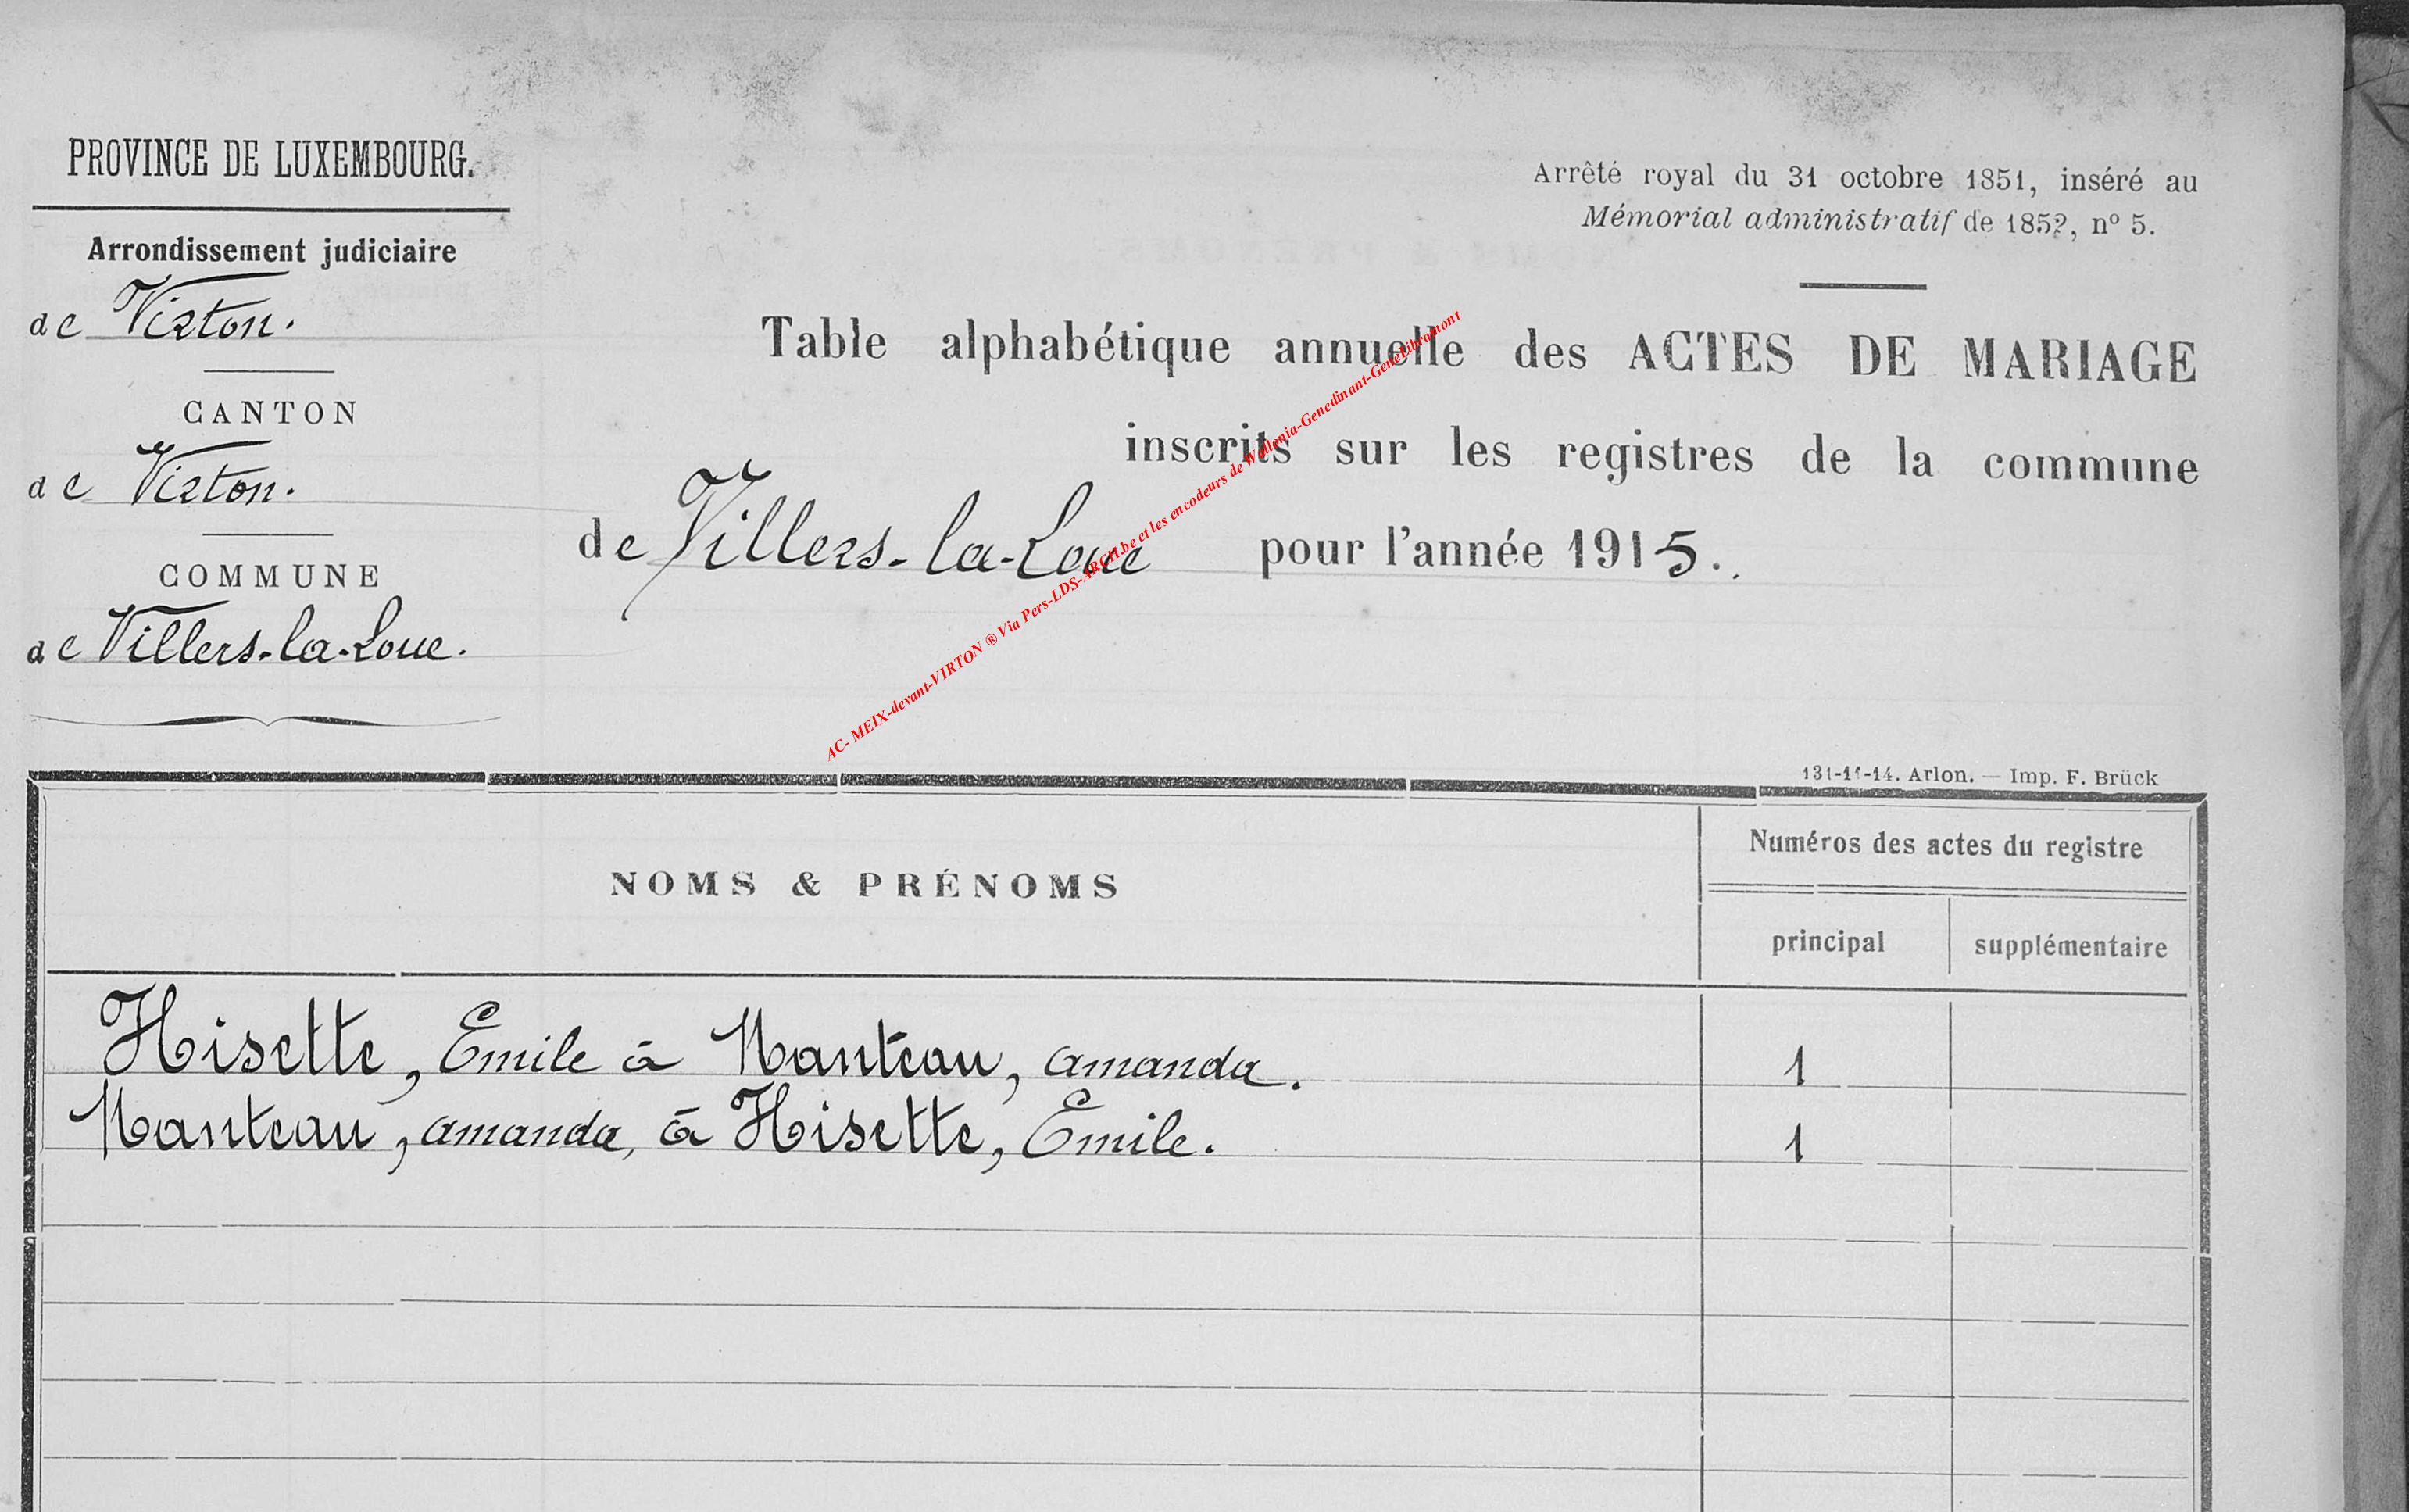 PROVINCE DE LUXEMBOURG.
Arrondissement judiciaire
de Virton.
CANTON
de Virton.
COMMUNE
de Villers-la-Loue.
Arrêté royal du 31 octobre 1851, inséré au
Mémorial administratif de 1852, nº 5.
Table alphabétique annuelle des ACTES DE MARIAGE
inscrits sur les registres de la commune
de Villers-la-Loue pour l'année 1915.
AC- MEIX-devant-VIRTON ® Via Pers-LDS-ARCH.be et les encodeurs de Wallonia-Genedinant-GeneLibramont
131-11-14. Arlon. — Imp. F. Brück
NOMS & PRÉNOMS
Numéros des actes du registre
principal supplémentaire
Hisette, Emile à Manteau, amanda. 1
Manteau, amanda, à Hisette, Emile. 1